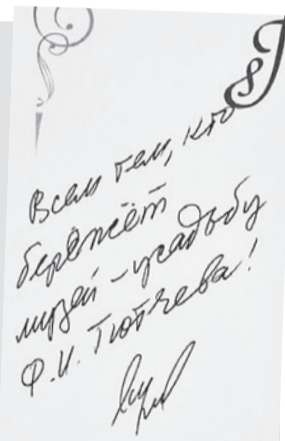 Всем тем, кто
бережёт
музей-усадьбу
Ф.И. Тютчева!